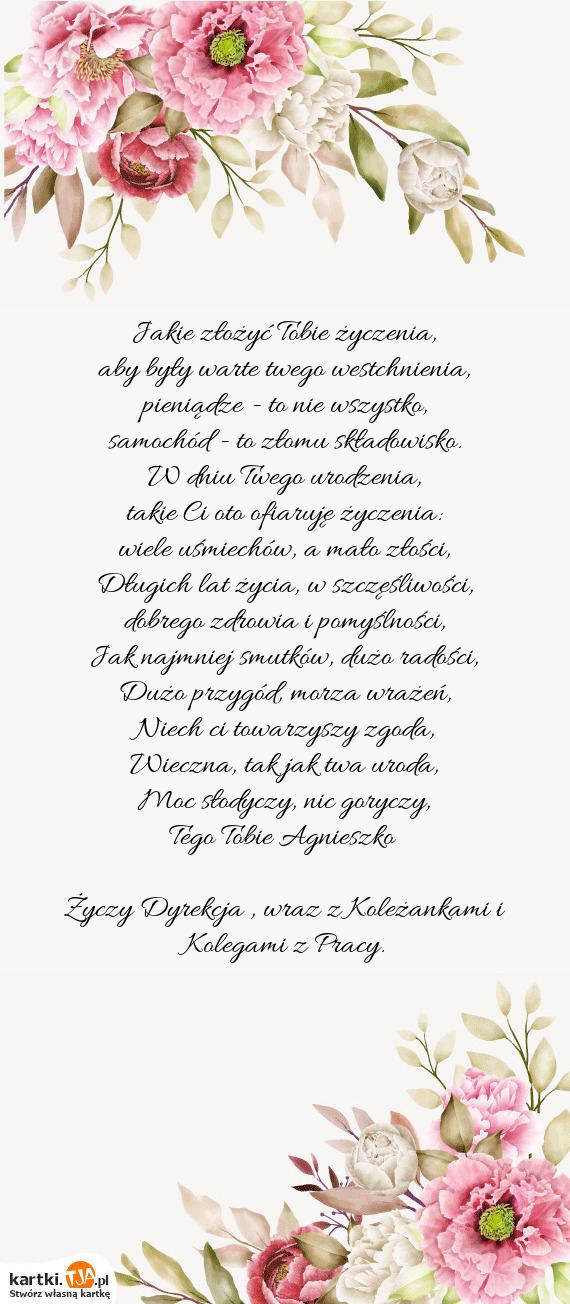 Jakie złożyć Tobie życzenia,
aby były warte twego westchnienia,
pieniądze - to nie wszystko,
samochód - to złomu składowisko.
W dniu Twego urodzenia,
takie Ci oto ofiaruję życzenia:
wiele uśmiechów, a mało złości,
Długich lat życia, w szczęśliwości,
dobrego zdrowia i pomyślności,
Jak najmniej smutków, dużo radości,
Dużo przygód, morza wrażeń,
Niech ci towarzyszy zgoda,
Wieczna, tak jak twa uroda,
Moc słodyczy, nic goryczy,
Tego Tobie Agnieszko
Życzy Dyrekcja , wraz z Koleżankami i
Kolegami z Pracy.
kartki.TJA.pl
Stwórz własną kartkę